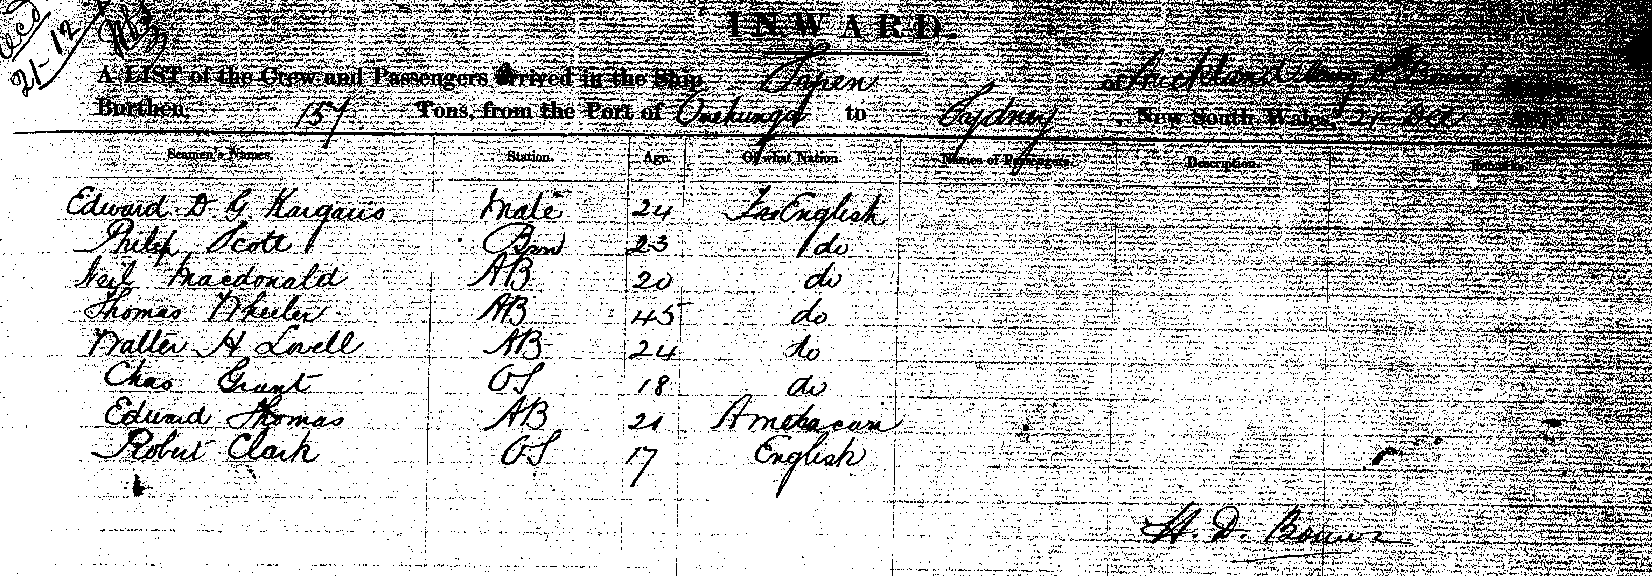 21-12
INWARD.
A LIST of the Crew and Passengers Arrived in the Ship of
Burthen, 151 Tons, from the Port of Onehunga to Sydney, New South Wales, 21 Oct
Seamen's Names. Station. Age. Of what Nation. Names of Passengers. Description.
Edward D G Mate 24 English
Philip Scott 23 do
Neil Macdonald AB 20 do
Thomas Wheeler AB 45 do
Walter H Lovell AB 24 do
Chas Grant OS 18 do
Edward Thomas AB 21 American
Robert Clark OS 17 English
H. D.